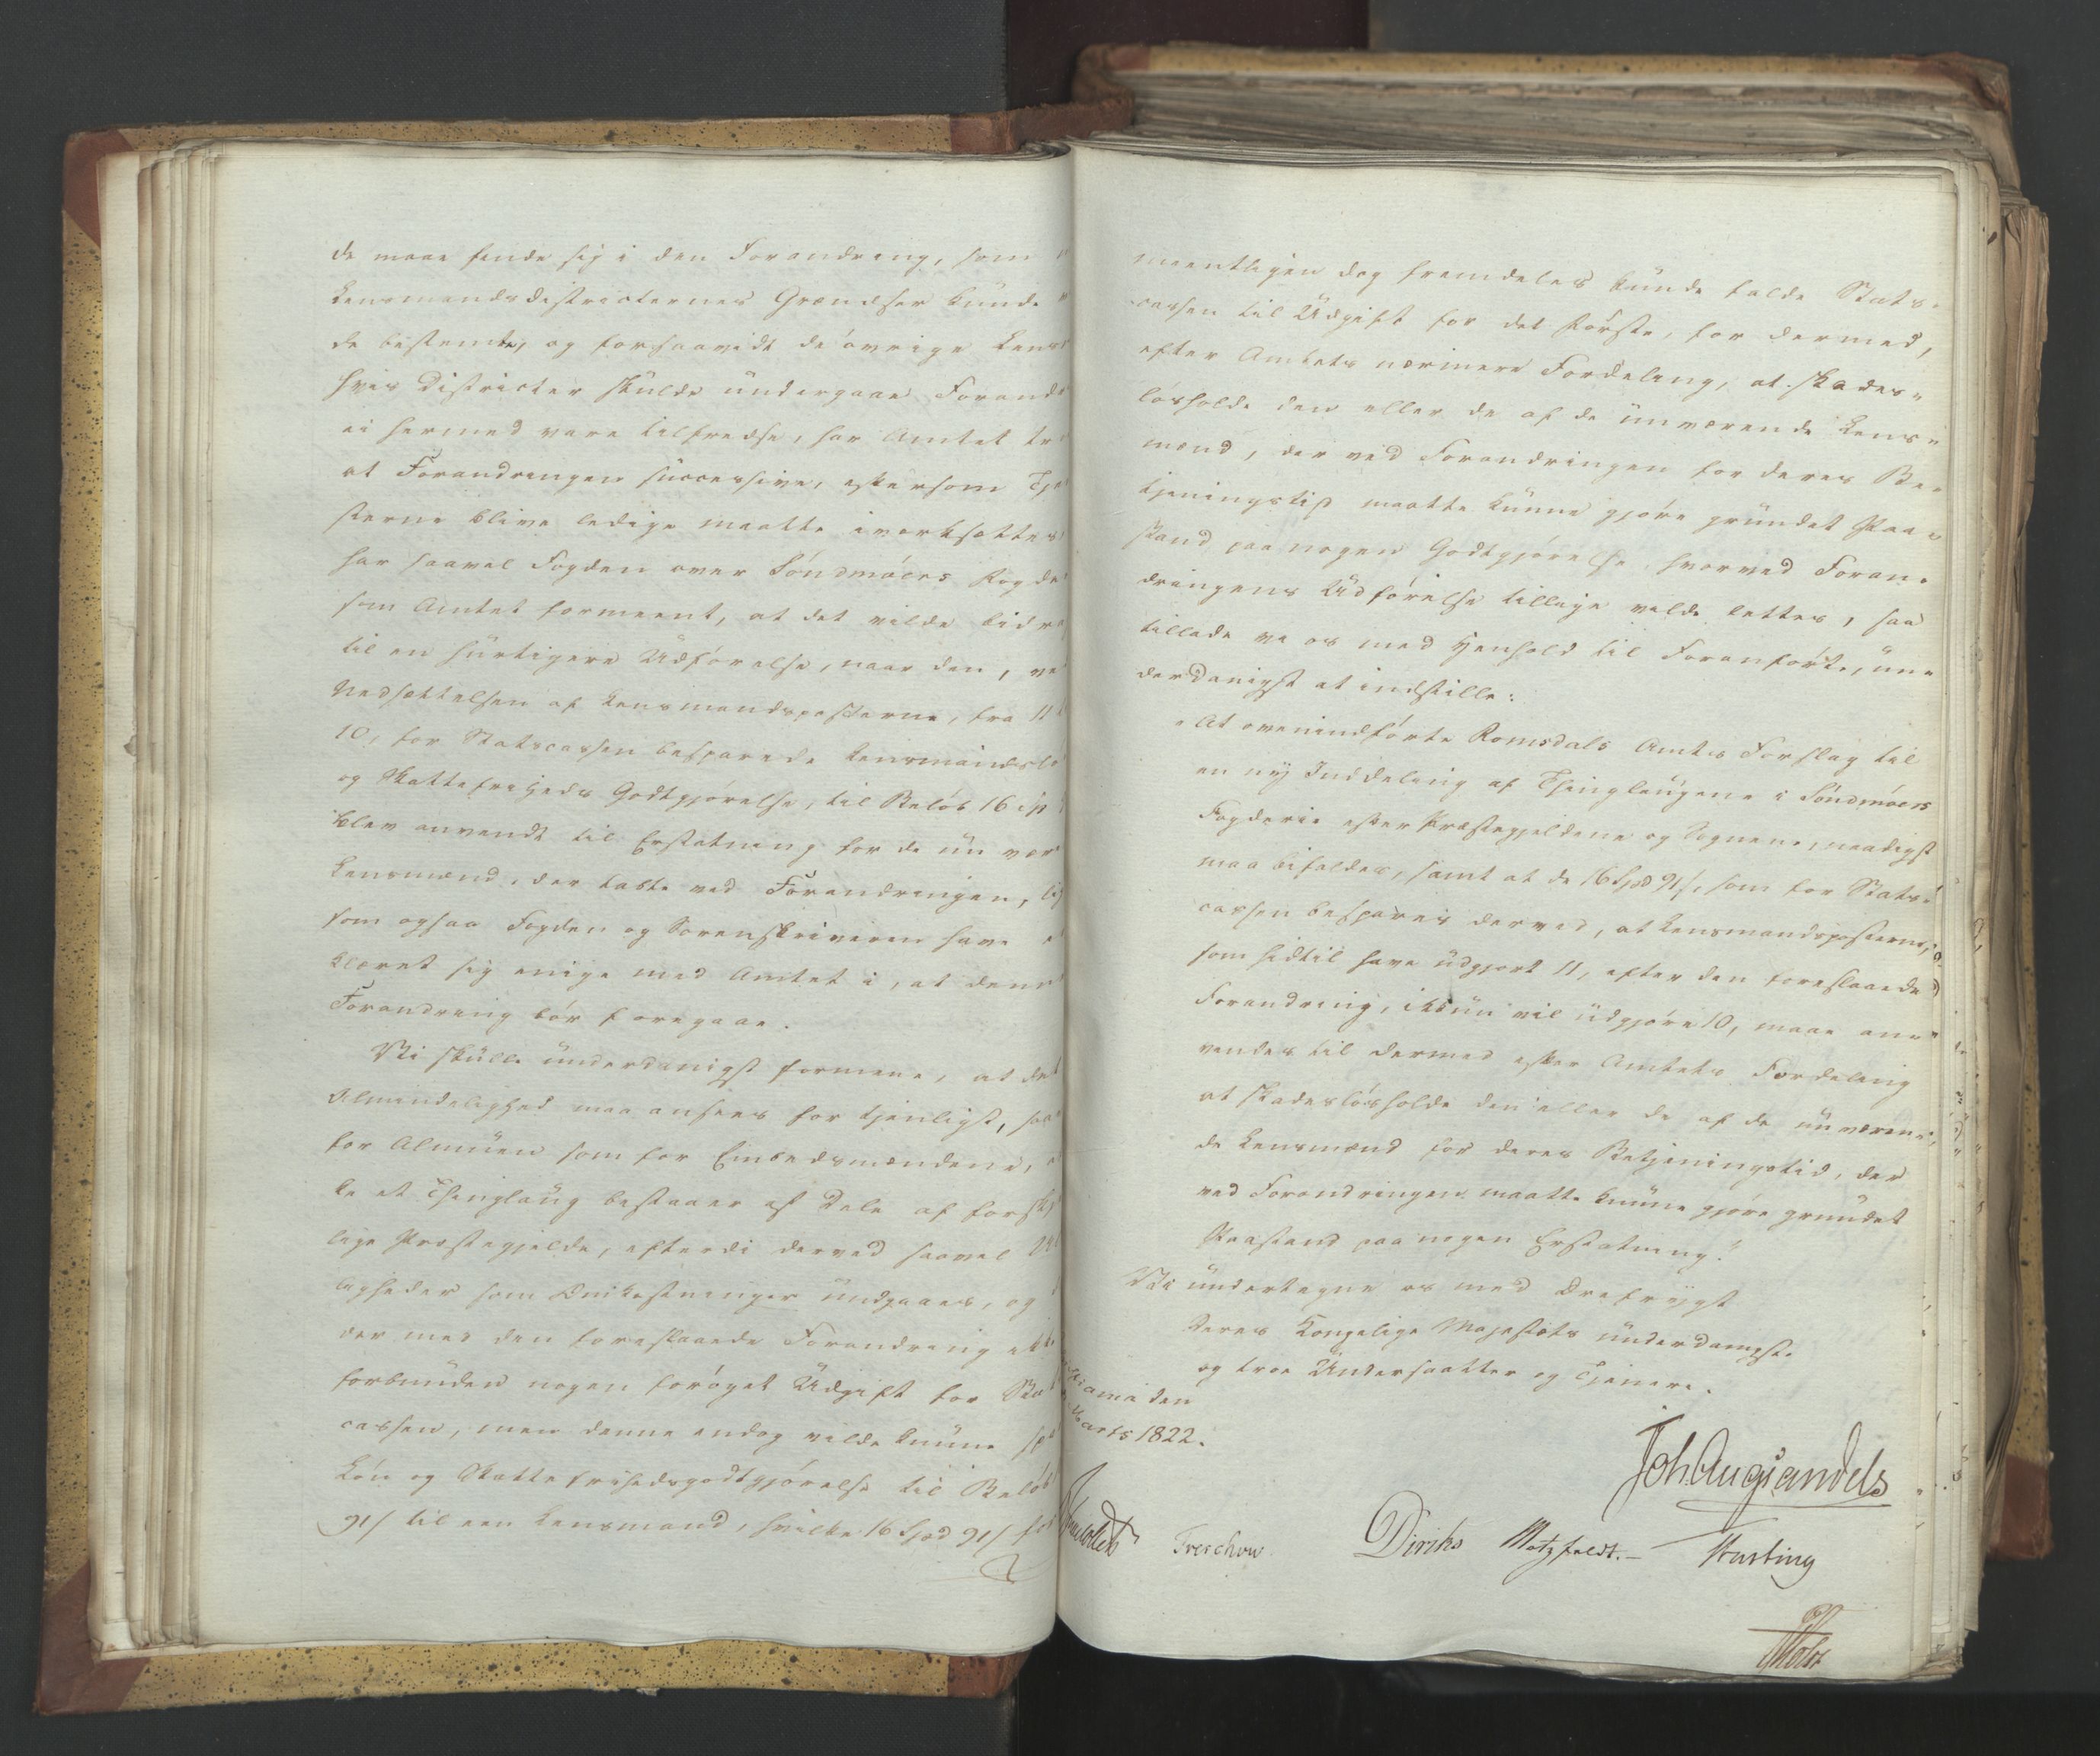 de maae finde sig i den Forandring, som
Lensmandsdistricternes Grændser kunde
de bestemte, og forsaavidt de øvrige Lens
hvis Districter skulde undergaae Forand
ei hermed være tilfredse, har Amtet
at Forandringen successive, eftersom Tje
sterne blive ledige maatte iværksættes
har saavel Fogden over Söndmöers Fogde
som Amtet formeent, at det vilde bidra
til en hurtigere Udförelse, naar den, ve
Nedsættelsen af Lensmandsposterne, fra 11
10, for Statscassen besparede Lensmandslö
og Skattefriheds Godtgjörelse, til Belöb 16
blev anvendt til Erstatning for de nu vær
Lensmænd, der tabte ved Forandringen, lig
som ogsaa Fogden og Sorenskriveren have
klæret sig enige med Amtet i, at denne
Forandring bör foregaae.
Vi skulle underdanigst formene, at det
Almindelighed maa ansees for tjenligst, saa
for Almuen som for Embedsmændene,
ke et Thinglaug bestaaer af Dele af forskj
lige Præstegjelde, efterdi derved saavel
ligheder som Omkostninger undgaaes, og
der med den foreslaaede Forandring ikke
forbunden nogen foröget Udgift for Stat
cassen, men denne endog vilde kunne
Lön og Skattefrihedsgodtgjörelse til Belöb
91/ til een Lensmand, hvilke 16 Spd 91/
meentligen dog fremdeles kunde falde Stats-
cassen til Udgift for det förste, for dermed,
efter Amtets nærmere Fordeling, at skades-
lösholde den eller de af de nuværende Lens-
mænd, der ved Forandringen for deres Be-
tjeningstid maatte kunne gjöre grundet Paa-
stand paa nogen Godtgjörelse, hvorved Foran-
dringens Udförelse tillige vilde lettes, saa
tillade vi os med Henhold til Foranförte, un-
derdanigst at indstille:
"At ovenindförte Romsdals Amts Forslag til
en nÿ Inddeling af Thinglaugene i Söndmöers
Fogderie efter Præstegjeldene og Sognene, naadigst
maa bifaldes, samt at de 16 Spd 91/, som for Stats-
cassen bespares derved, at Lensmandsposterne,
som hidtil have udgjort 11, efter den foreslaaede
Forandring, ikkun vil udgjöre 10, maae an-
vendes til dermed efter Amtets Fordeling
at skadeslösholde den eller de af de nuværen-
de Lensmænd for deres Betjeningstid, der
ved Forandringen maatte kunne gjöre grundet
Paastand paa nogen Erstatning."
Vi undertegne os med Ærefrÿgt
Deres Kongelige Majestæts underdanigste
og troe Undersaatter og Tjenere.
stiania den
Marts 1822.
Joh. Aug Sandels
Collett Treschow Diriks Motzfeldt.- Fasting
Mohr